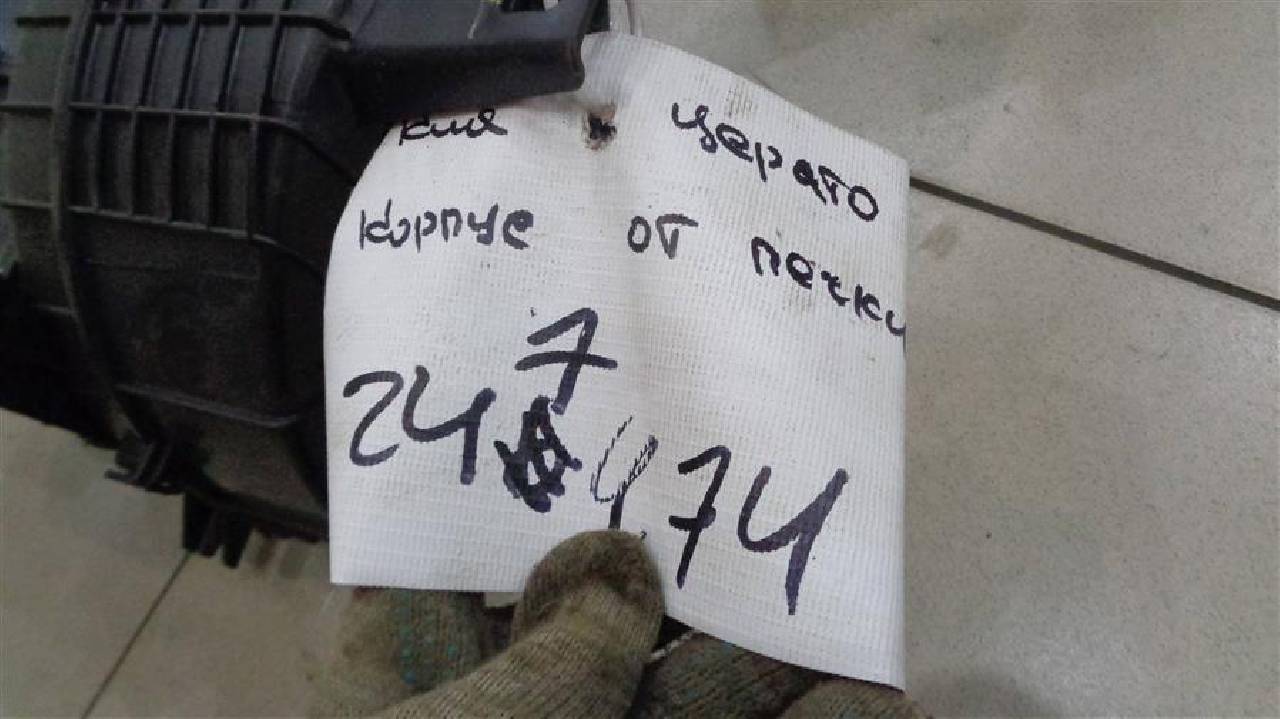 киа церато
корпус от печки
7
24 4 74